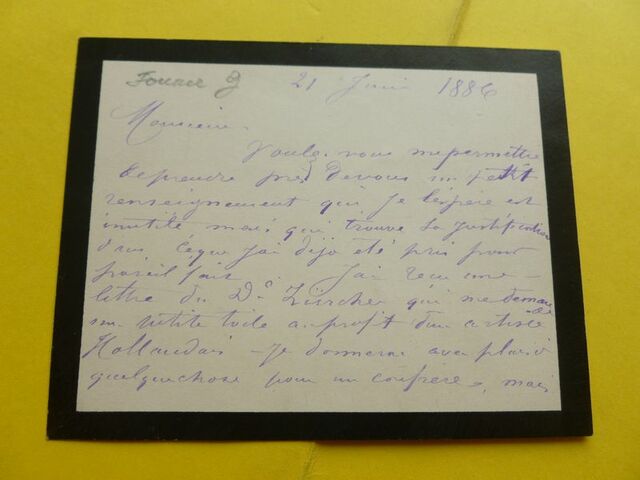 Fouace G
21 Juin 1886
Monsieur.
Voulez vous me permettre
de prendre près de vous un petit
renseignement qui je l'espère est
inutile mais qui trouve sa justification
dans ce que j'ai déjà été pris pour
pareil fait. J'ai reçu une
lettre du Dr Zürcher qui me demande
une petite toile au profit d'un artiste
Hollandais - Je donnerai avec plaisir
quelque chose pour un confrère, mais